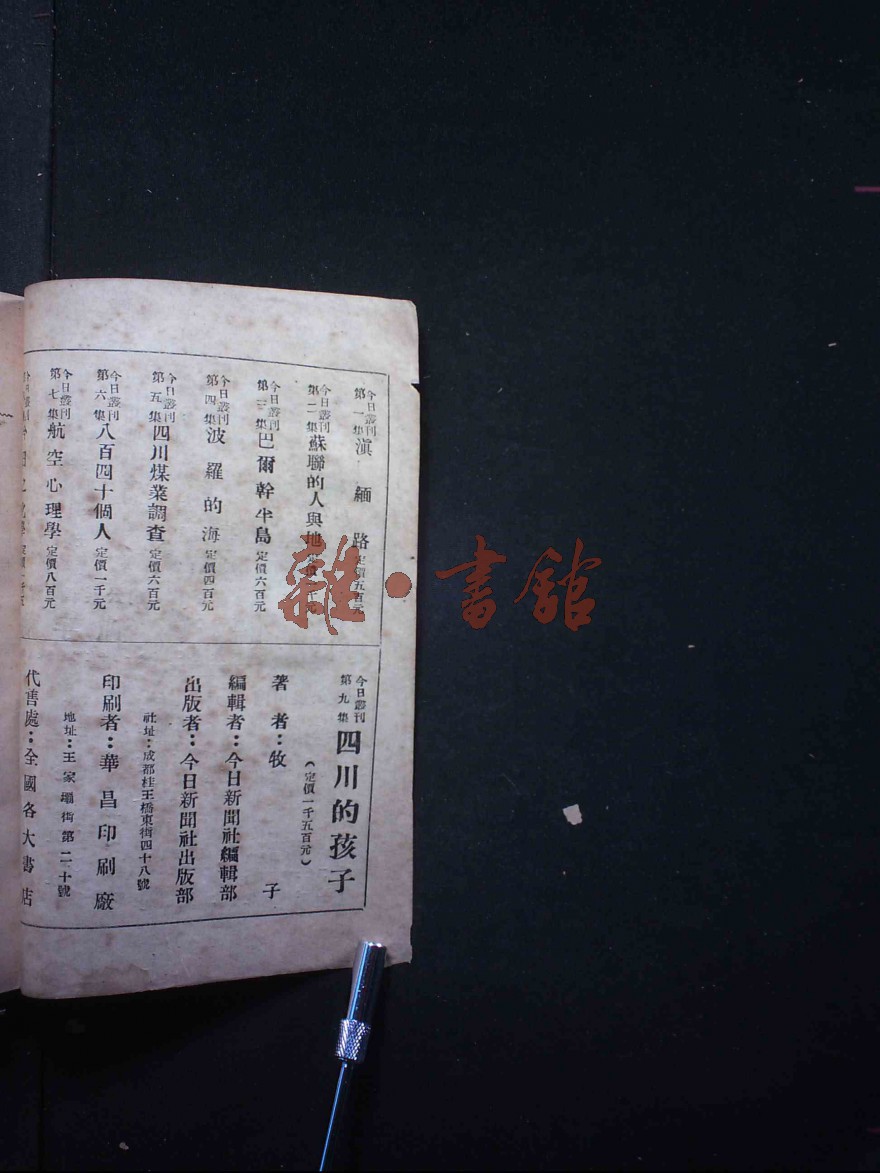 今日叢刊第一集 滇緬路 定價五百元
今日叢刊第二集 蘇聯的人與地 定價一千元
今日叢刊第三集 巴爾幹半島 定價六百元
今日叢刊第四集 波羅的海 定價四百元
今日叢刊第五集 四川煤業調查 定價六百元
今日叢刊第六集 八百四十個人 定價一千元
今日叢刊第七集 航空心理學 定價八百元
今日叢刊第九集 四川的孩子
(定價一千五百元)
著者:牧子
編輯者:今日新聞社編輯部
出版者:今日新聞社出版部
社址:成都桂王橋東街四十八號
印刷者:華昌印刷廠
地址:王家壩街第二十號
代售處:全國各大書店
雜·書館